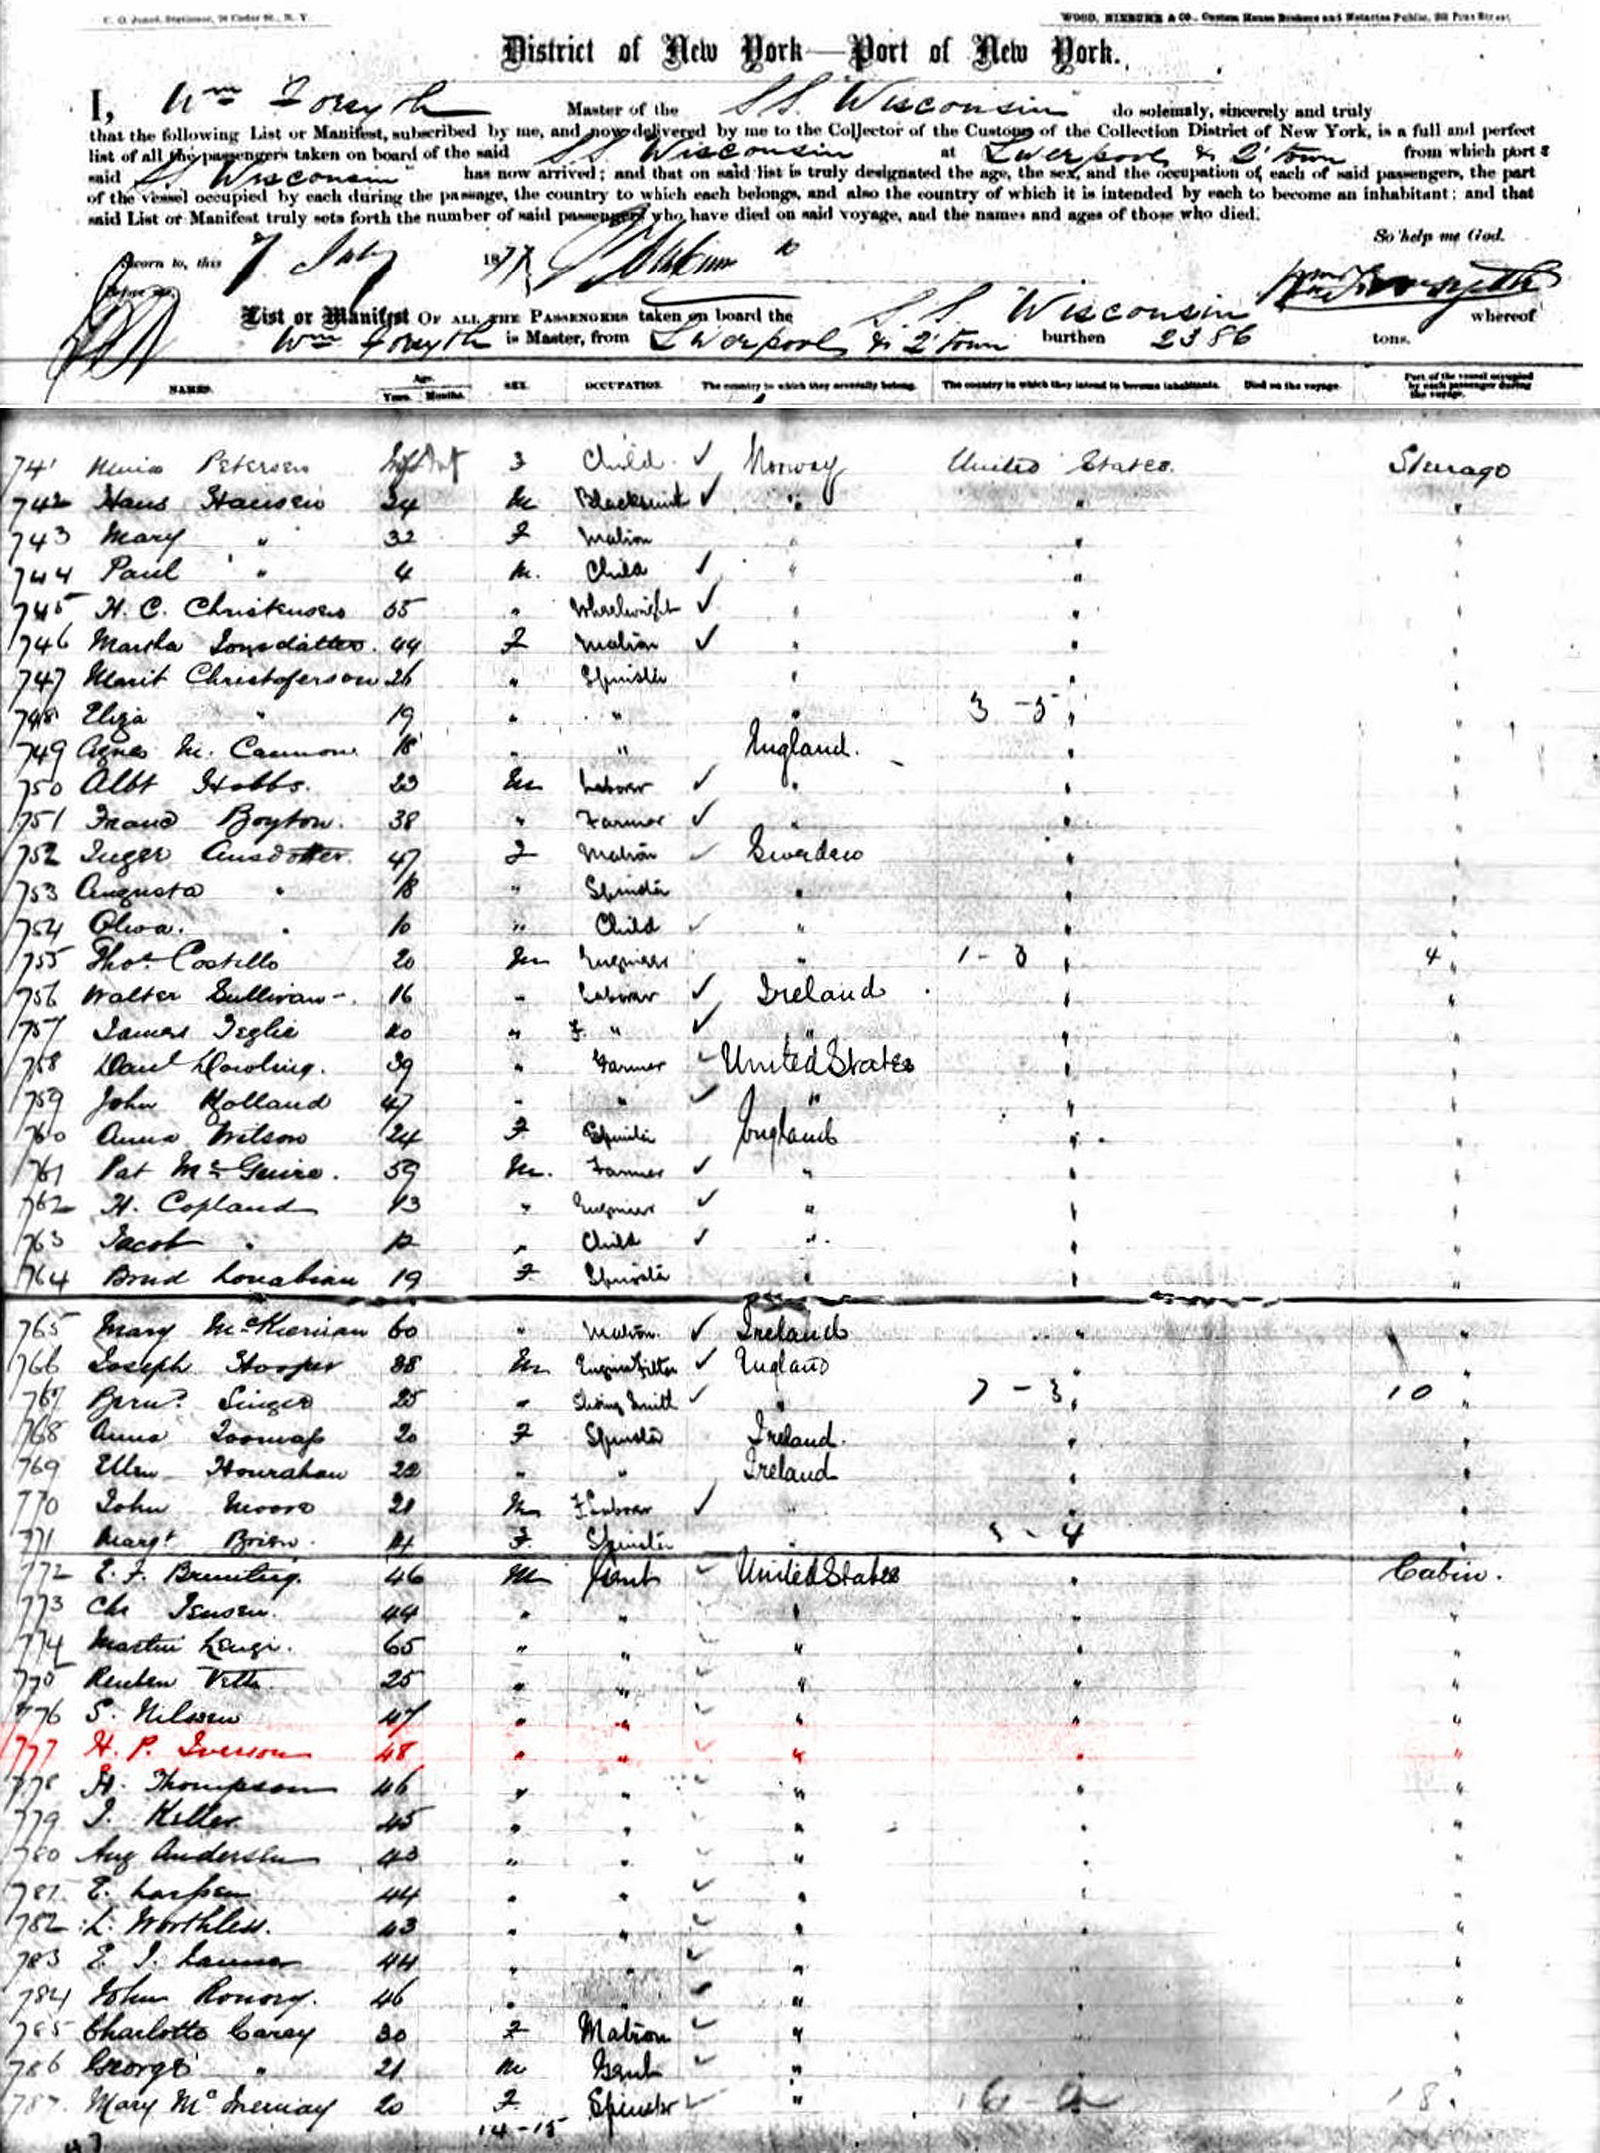 C. O. Jones, Stationer, 76 Cedar St., N. Y.
WOOD, NIEBUHR & CO., Custom House Brokers and Notaries Public, Pine Street
District of New York—Port of New York.
I, Wm Forsyth Master of the S.S. "Wisconsin" do solemnly, sincerely and truly
that the following List or Manifest, subscribed by me, and now delivered by me to the Collector of the Customs of the Collection District of New York, is a full and perfect
list of all the passengers taken on board of the said S.S. Wisconsin at Liverpool & Q'town from which port s
said S.S. Wisconsin" has now arrived; and that on said list is truly designated the age, the sex, and the occupation of each of said passengers, the part
of the vessel occupied by each during the passage, the country to which each belongs, and also the country of which it is intended by each to become an inhabitant; and that
said List or Manifest truly sets forth the number of said passengers who have died on said voyage, and the names and ages of those who died.
So help me God.
Sworn to, this 7 July 1877
Before me, Wm Forsyth
List or Manifest OF ALL THE PASSENGERS taken on board the S.S. Wisconsin whereof
Wm Forsyth is Master, from Liverpool & Q'town burthen 2386 tons.
NAMES. Age. Years. Months. SEX. OCCUPATION. The country to which they severally belong. The country in which they intend to become inhabitants. Died on the voyage. Part of the vessel occupied by each passenger during the voyage.
741 Petersen Inft F Child ✓ Norway United States. Steerage
742 Hans Hansen 34 M Blacksmith ✓ " " "
743 Mary " 32 F Matron " " "
744 Paul " 4 M. Child ✓ " " "
745 H. C. Christensen 55 " Wheelwright ✓ " " "
746 Martha Jonsdatter. 44 F Matron ✓ " " "
747 Marit Christoferson 26 " Spinster " " "
748 Eliza " 19 " " " 3 - 5 " "
749 Agnes M. Cannon 18 " " England. " "
750 Albt Hobbs. 23 M Laborer ✓ " " "
751 Franc Boyton. 38 " Farmer ✓ " " "
752 Inger Ansdotter 47 F Matron ✓ Sweden " "
753 Augusta " 18 " Spinster " " "
754 Oliva. " 10 " Child ✓ " " "
755 Thos. Costello 20 M Engineer " 1 - 3 " 4 "
756 Walter Sullivan 16 " Laborer ✓ Ireland " "
757 James 20 " F. " ✓ " " "
758 Danl Dowling. 39 " Farmer ✓ United States " "
759 John Holland 47 " " ✓ " " "
760 Anna Wilson 24 F Spinster England " "
761 Pat McGuire. 59 M. Farmer ✓ " " "
762 H. Copland 43 " Engineer ✓ " " "
763 Jacob " 12 " Child ✓ " " "
764 Brid 19 F Spinster " " "
765 Mary McKiernan 60 " Matron. ✓ Ireland " "
766 Joseph Hooper 38 M Engine Fitter ✓ England " "
767 Singer 25 " Smith ✓ " 7 - 3 " 10 "
768 Anna 20 F Spinster Ireland. " "
769 Ellen Hourahan 22 " " Ireland " "
770 John Moore 21 M F Laborer ✓ " " "
771 Margt Brien. F. Spinster " - 4 "
772 E. F. Bruning. 46 M Gent ✓ United States " Cabin.
773 Chr Jensen. 44 " " ✓ " " "
774 Martin Lengi. 65 " " ✓ " " "
775 Reuben Vette. 25 " " ✓ " " "
776 S. Nilsson 47 " " ✓ " " "
777 H. P. Iverson 48 " " " " "
778 H. Thompson 46 " " ✓ " " "
779 J. Keller 45 " " " " "
780 Aug Andersen 43 " " ✓ " " "
781. E. Larssen 44 " " ✓ " " "
782 L. Worthless. 43 " " ✓ " " "
783 E. J. 44 " " ✓ " "
784 John 46 " " ✓ " " "
785 Charlotte Carey 30 F Matron ✓ " " "
786 George " 21 M Gent ✓ " "
787. Mary 20 F. Spinster ✓ " 18
14 - 15